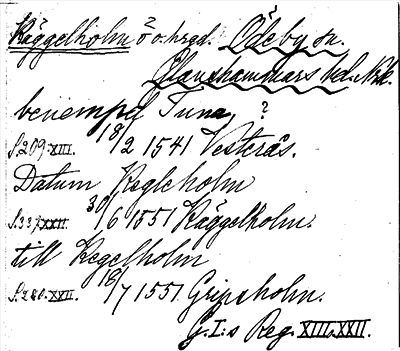 Käggelholm ö o. hrgd. Ödeby sn.
Glanshammars hd. Nrk.
benempd Tuna, ?
S. 209. XIII. 18/2 1541 Vesterås.
Datum Kegleholm
S. 337 XXII. 30/6 1551 Käggelholm.
till Kegelholm
S. 280. XVII. 18/7 1551 Gripsholm.
G. I:s Reg. XIII. XXII.